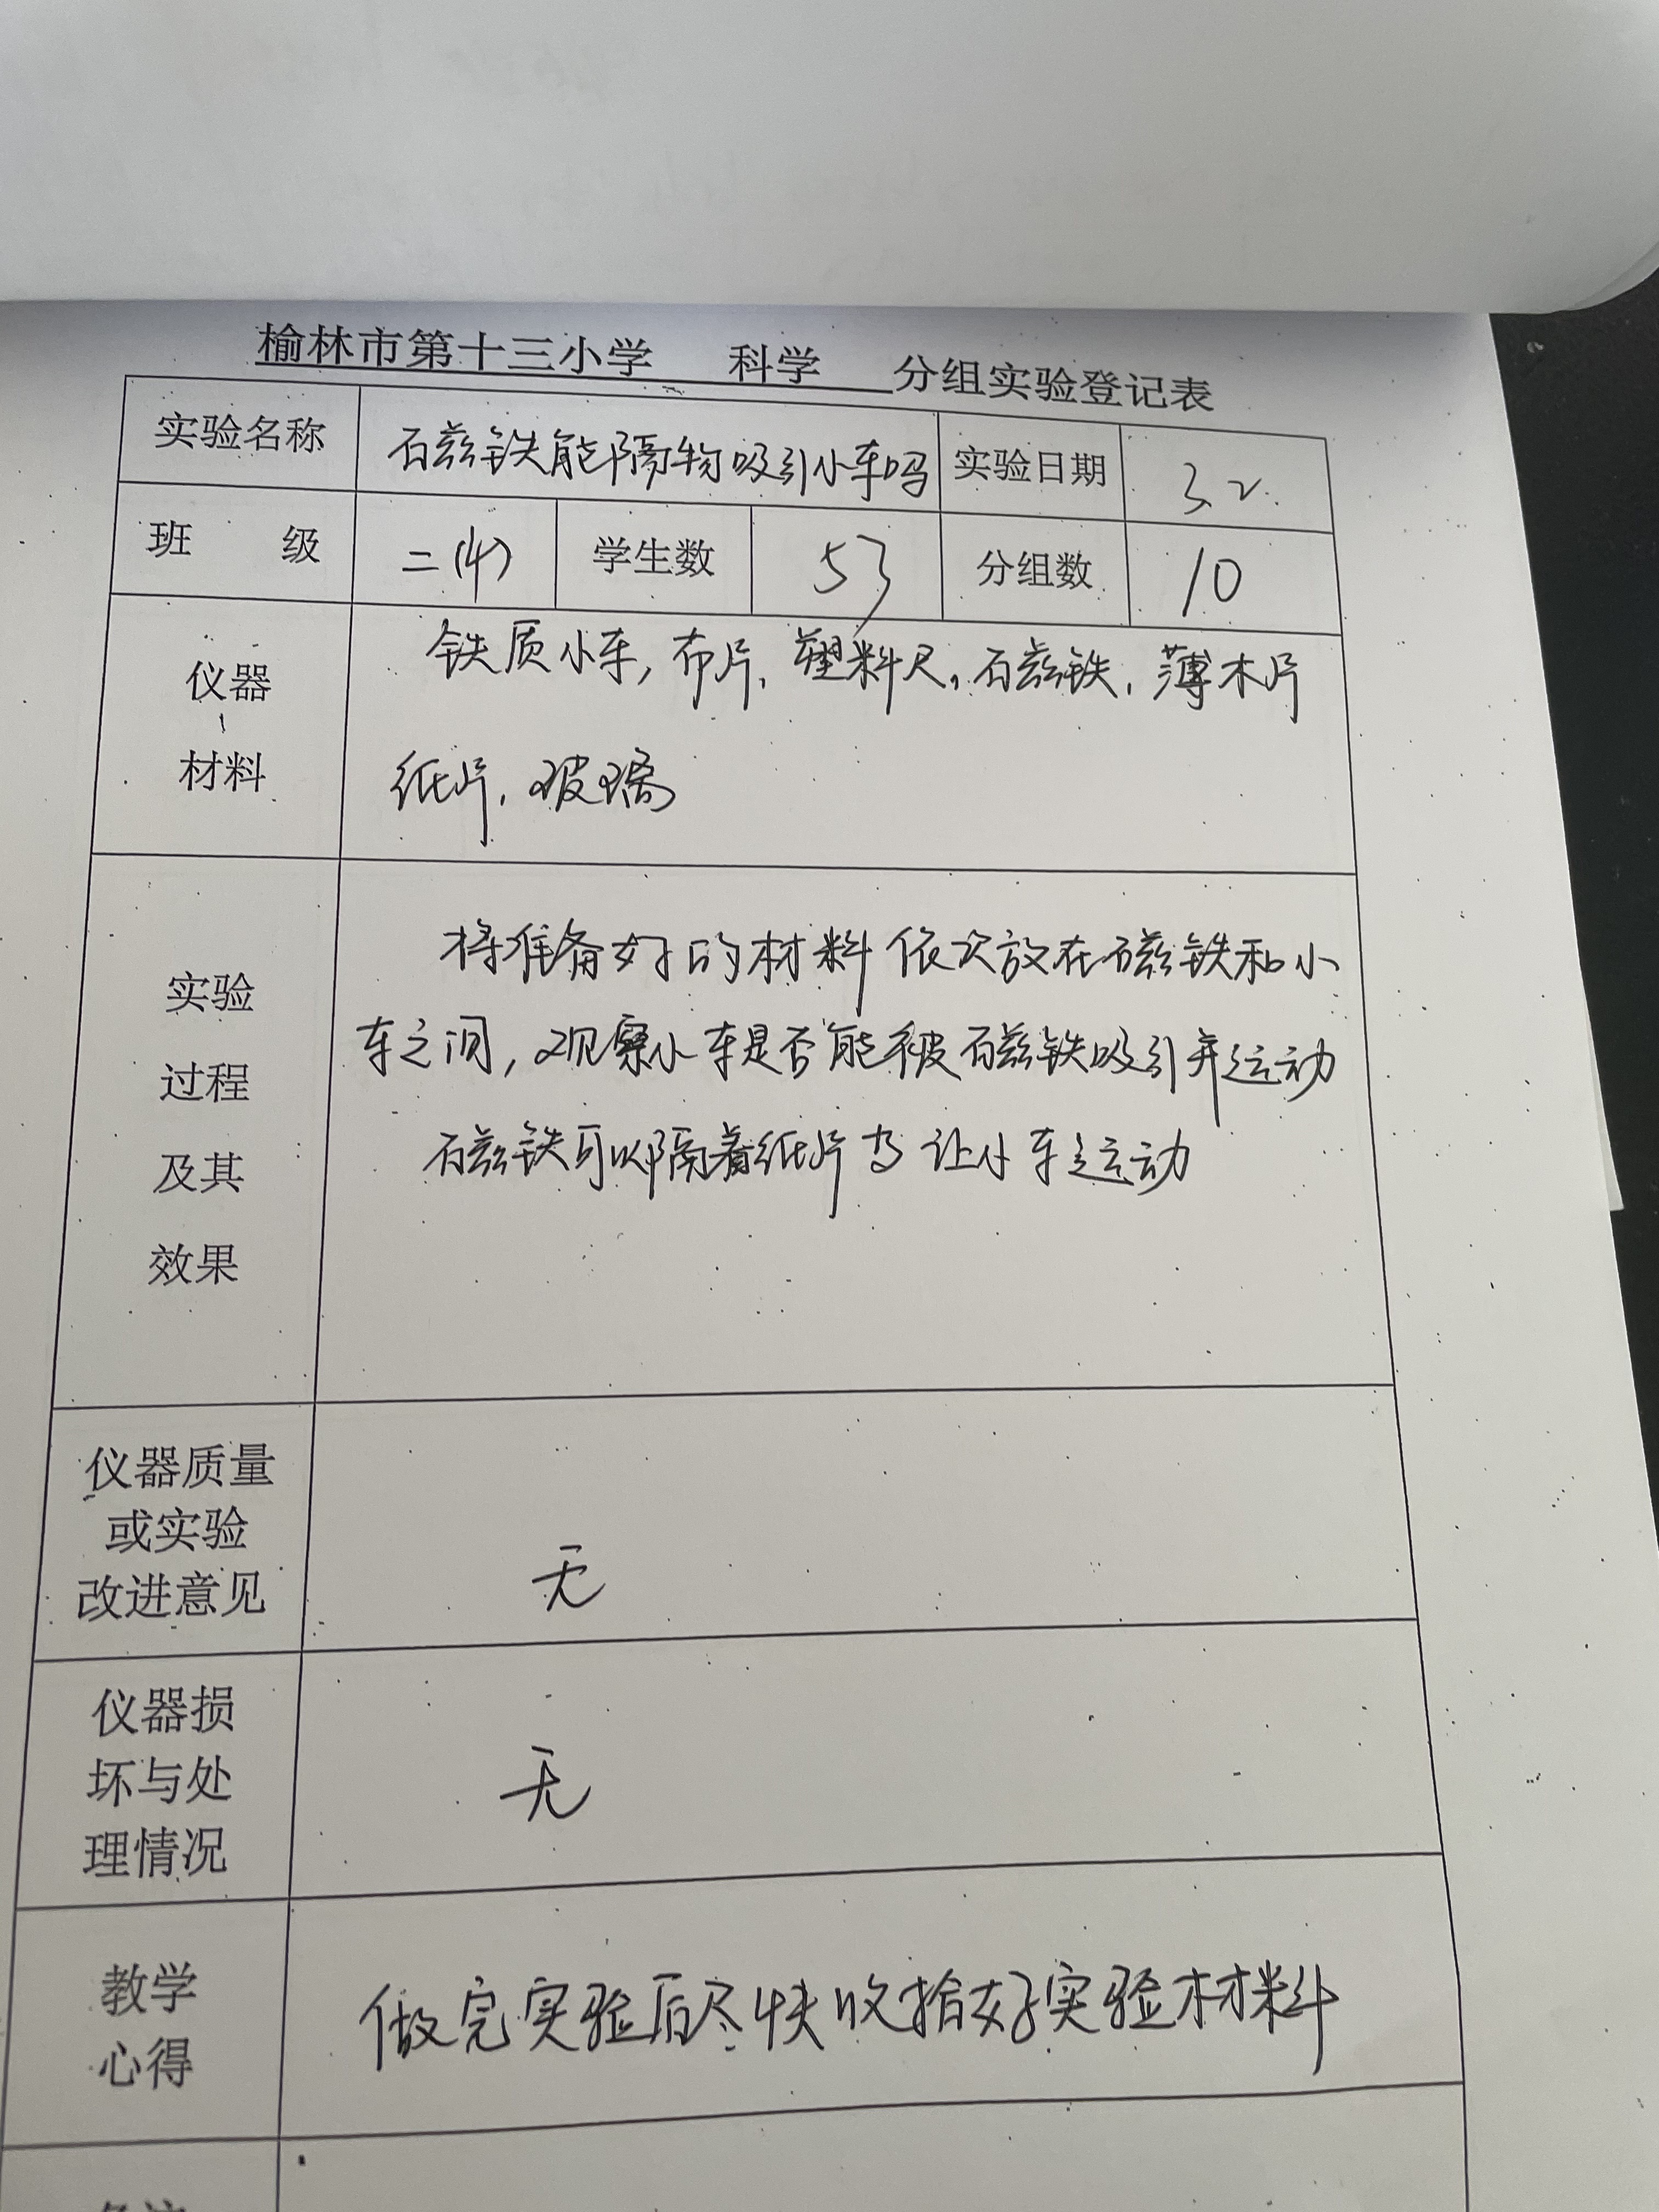 榆林市第十三小学 科学 分组实验登记表
实验名称 磁铁能隔物吸引小车吗 实验日期 3.2.
班 级 二(4) 学生数 53 分组数 10
仪器 材料 铁质小车，布片，塑料尺，磁铁，薄木片
纸片，玻璃
实验 过程 及其 效果 将准备好的材料依次放在磁铁和小
车之间，观察小车是否能被磁铁吸引并运动
磁铁可以隔着纸片 让小车运动
仪器质量
或实验 无
改进意见
仪器损
坏与处 无
理情况
教学 心得 做完实验后尽快收拾好实验材料